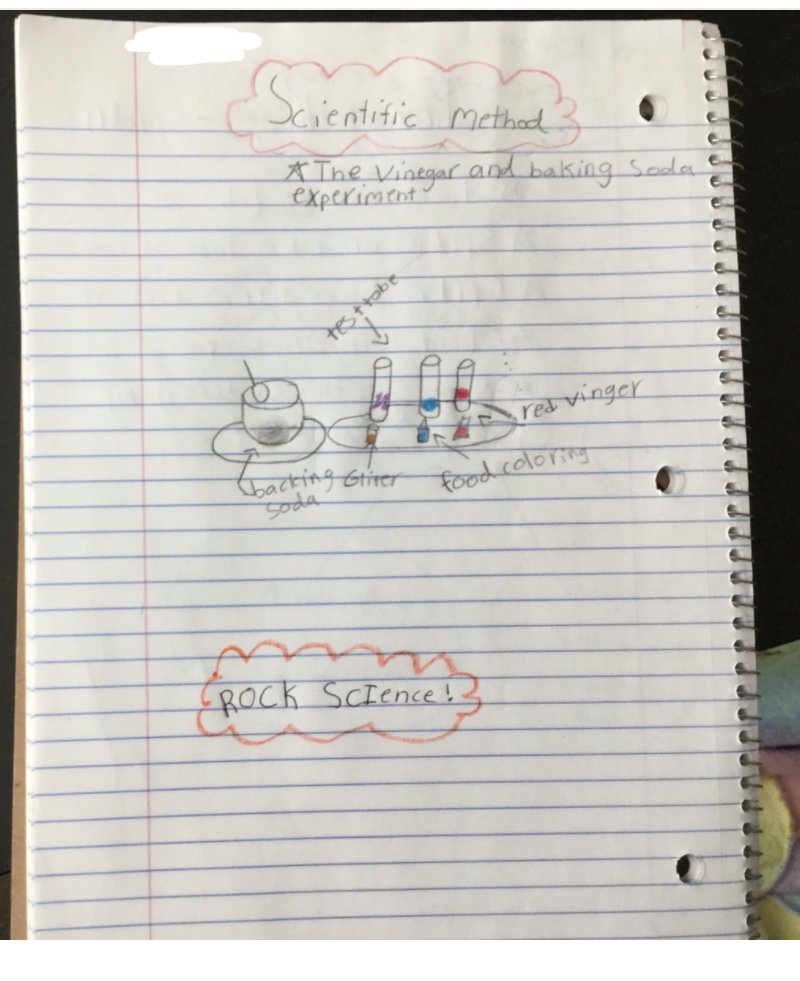 Scientific Method
☆ The Vinegar and baking Soda
experiment
test tobe
red vinger
backing Gliter food coloring
soda
ROCK ScIence!